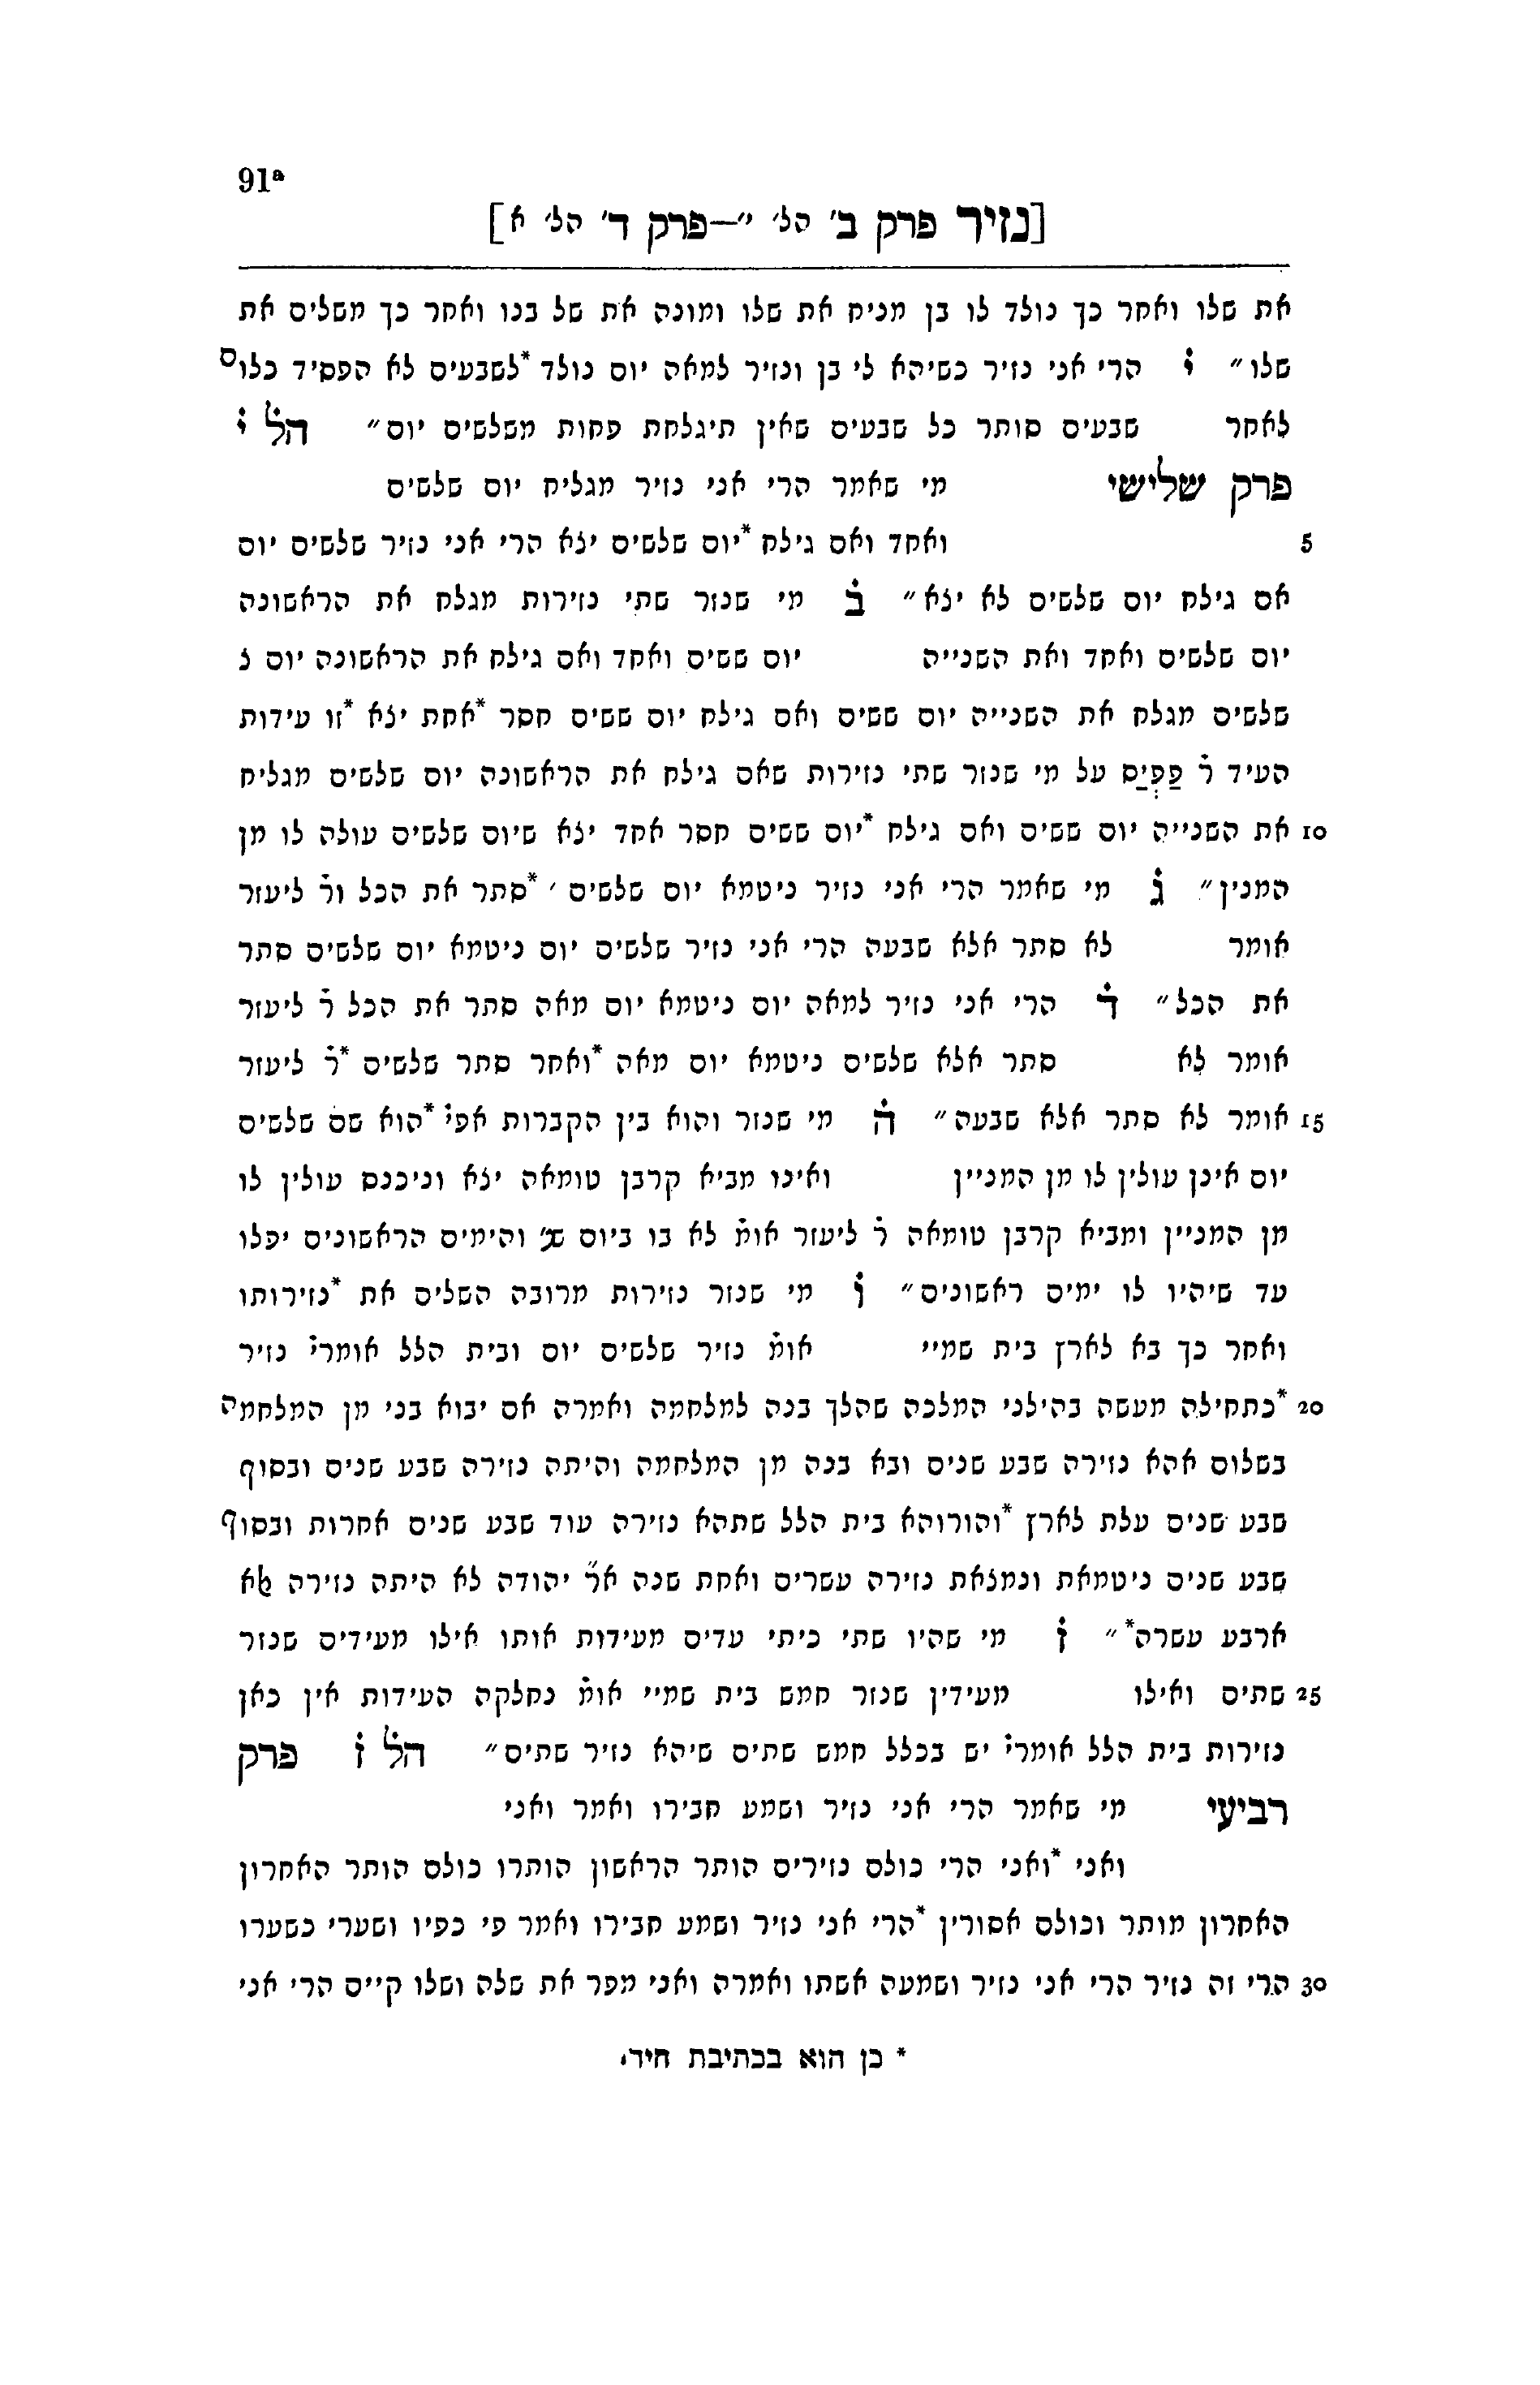 91ª
[נזיר פרק ב' הל' י'—פרק ד' הל' א]
את שלו ואחר כך נולד לו בן מניח את שלו ומונה את של בנו ואחר כך משלים את
שלו״ י הרי אני נזיר כשיהא לי בן ונזיר למאה יום נולד *לשבעים לא הפסיד כלום
לאחר שבעים סותר כל שבעים שאין תיגלחת פחות משלשים יום״ הל י
פרק שלישי מי שאמר הרי אני נזיר מגליח יום שלשים
5 ואחד ואם גילח *יום שלשים יצא הרי אני נזיר שלשים יום
אם גילח יום שלשים לא יצא״ ב מי שנזר שתי נזירות מגלח את הראשונה
יום שלשים ואחד ואת השנייה יום ששים ואחד ואם גילח את הראשונה יום צ
שלשים מגלח את השנייה יום ששים ואם גילח יום ששים חסר *אחת יצא *זו עידות
העיד ר' פַּפְּיַס על מי שנזר שתי נזירות שאם גילח את הראשונה יום שלשים מגליח
10 את השנייה יום ששים ואם גילח *יום ששים חסר אחד יצא שיום שלשים עולה לו מן
המנין״ ג מי שאמר הרי אני נזיר ניטמא יום שלשים ' *סתר את הכל ור' ליעזר
אומר לא סתר אלא שבעה הרי אני נזיר שלשים יום ניטמא יום שלשים סתר
את הכל״ ד הרי אני נזיר למאה יום ניטמא יום מאה סתר את הכל ר' ליעזר
אומר לא סתר אלא שלשים ניטמא יום מאה *ואחר סתר שלשים *ר' ליעזר
15 אומר לא סתר אלא שבעה״ ה מי שנזר והוא בין הקברות אפי' *הוא שם שלשים
יום אינן עולין לו מן המניין ואינו מביא קרבן טומאה יצא וניכנס עולין לו
מן המניין ומביא קרבן טומאה ר' ליעזר אומ' לא בו ביום שנ' והימים הראשונים יפלו
עד שיהיו לו ימים ראשונים״ ו מי שנזר נזירות מרובה השלים את *נזירותו
ואחר כך בא לארץ בית שמיי אומ' נזיר שלשים יום ובית הלל אומרי' נזיר
20 *כתחילה מעשה בהילני המלכה שהלך בנה למלחמה ואמרה אם יבוא בני מן המלחמה
בשלום אהא נזירה שבע שנים ובא בנה מן המלחמה והיתה נזירה שבע שנים ובסוף
שבע שנים עלת לארץ *והורוהא בית הלל שתהא נזירה עוד שבע שנים אחרות ובסוף
שבע שנים ניטמאת ונמצאת נזירה עשרים ואחת שנה אר״ יהודה לא היתה נזירה אלא
ארבע עשרה*״ ז מי שהיו שתי כיתי עדים מעידות אותו אילו מעידים שנזר
25 שתים ואילו מעידין שנזר חמש בית שמיי אומ' נחלקה העידות אין כאן
נזירות בית הלל אומרי' יש בכלל חמש שתים שיהא נזיר שתים״ הל ז פרק
רביעי מי שאמר הרי אני נזיר ושמע חבירו ואמר ואני
ואני *ואני הרי כולם נזירים הותר הראשון הותרו כולם הותר האחרון
האחרון מותר וכולם אסורין *הרי אני נזיר ושמע חבירו ואמר פי כפיו ושערי כשערו
30 הרי זה נזיר הרי אני נזיר ושמעה אשתו ואמרה ואני מפר את שלה ושלו קיים הרי אני
* כן הוא בכתיבת היד.